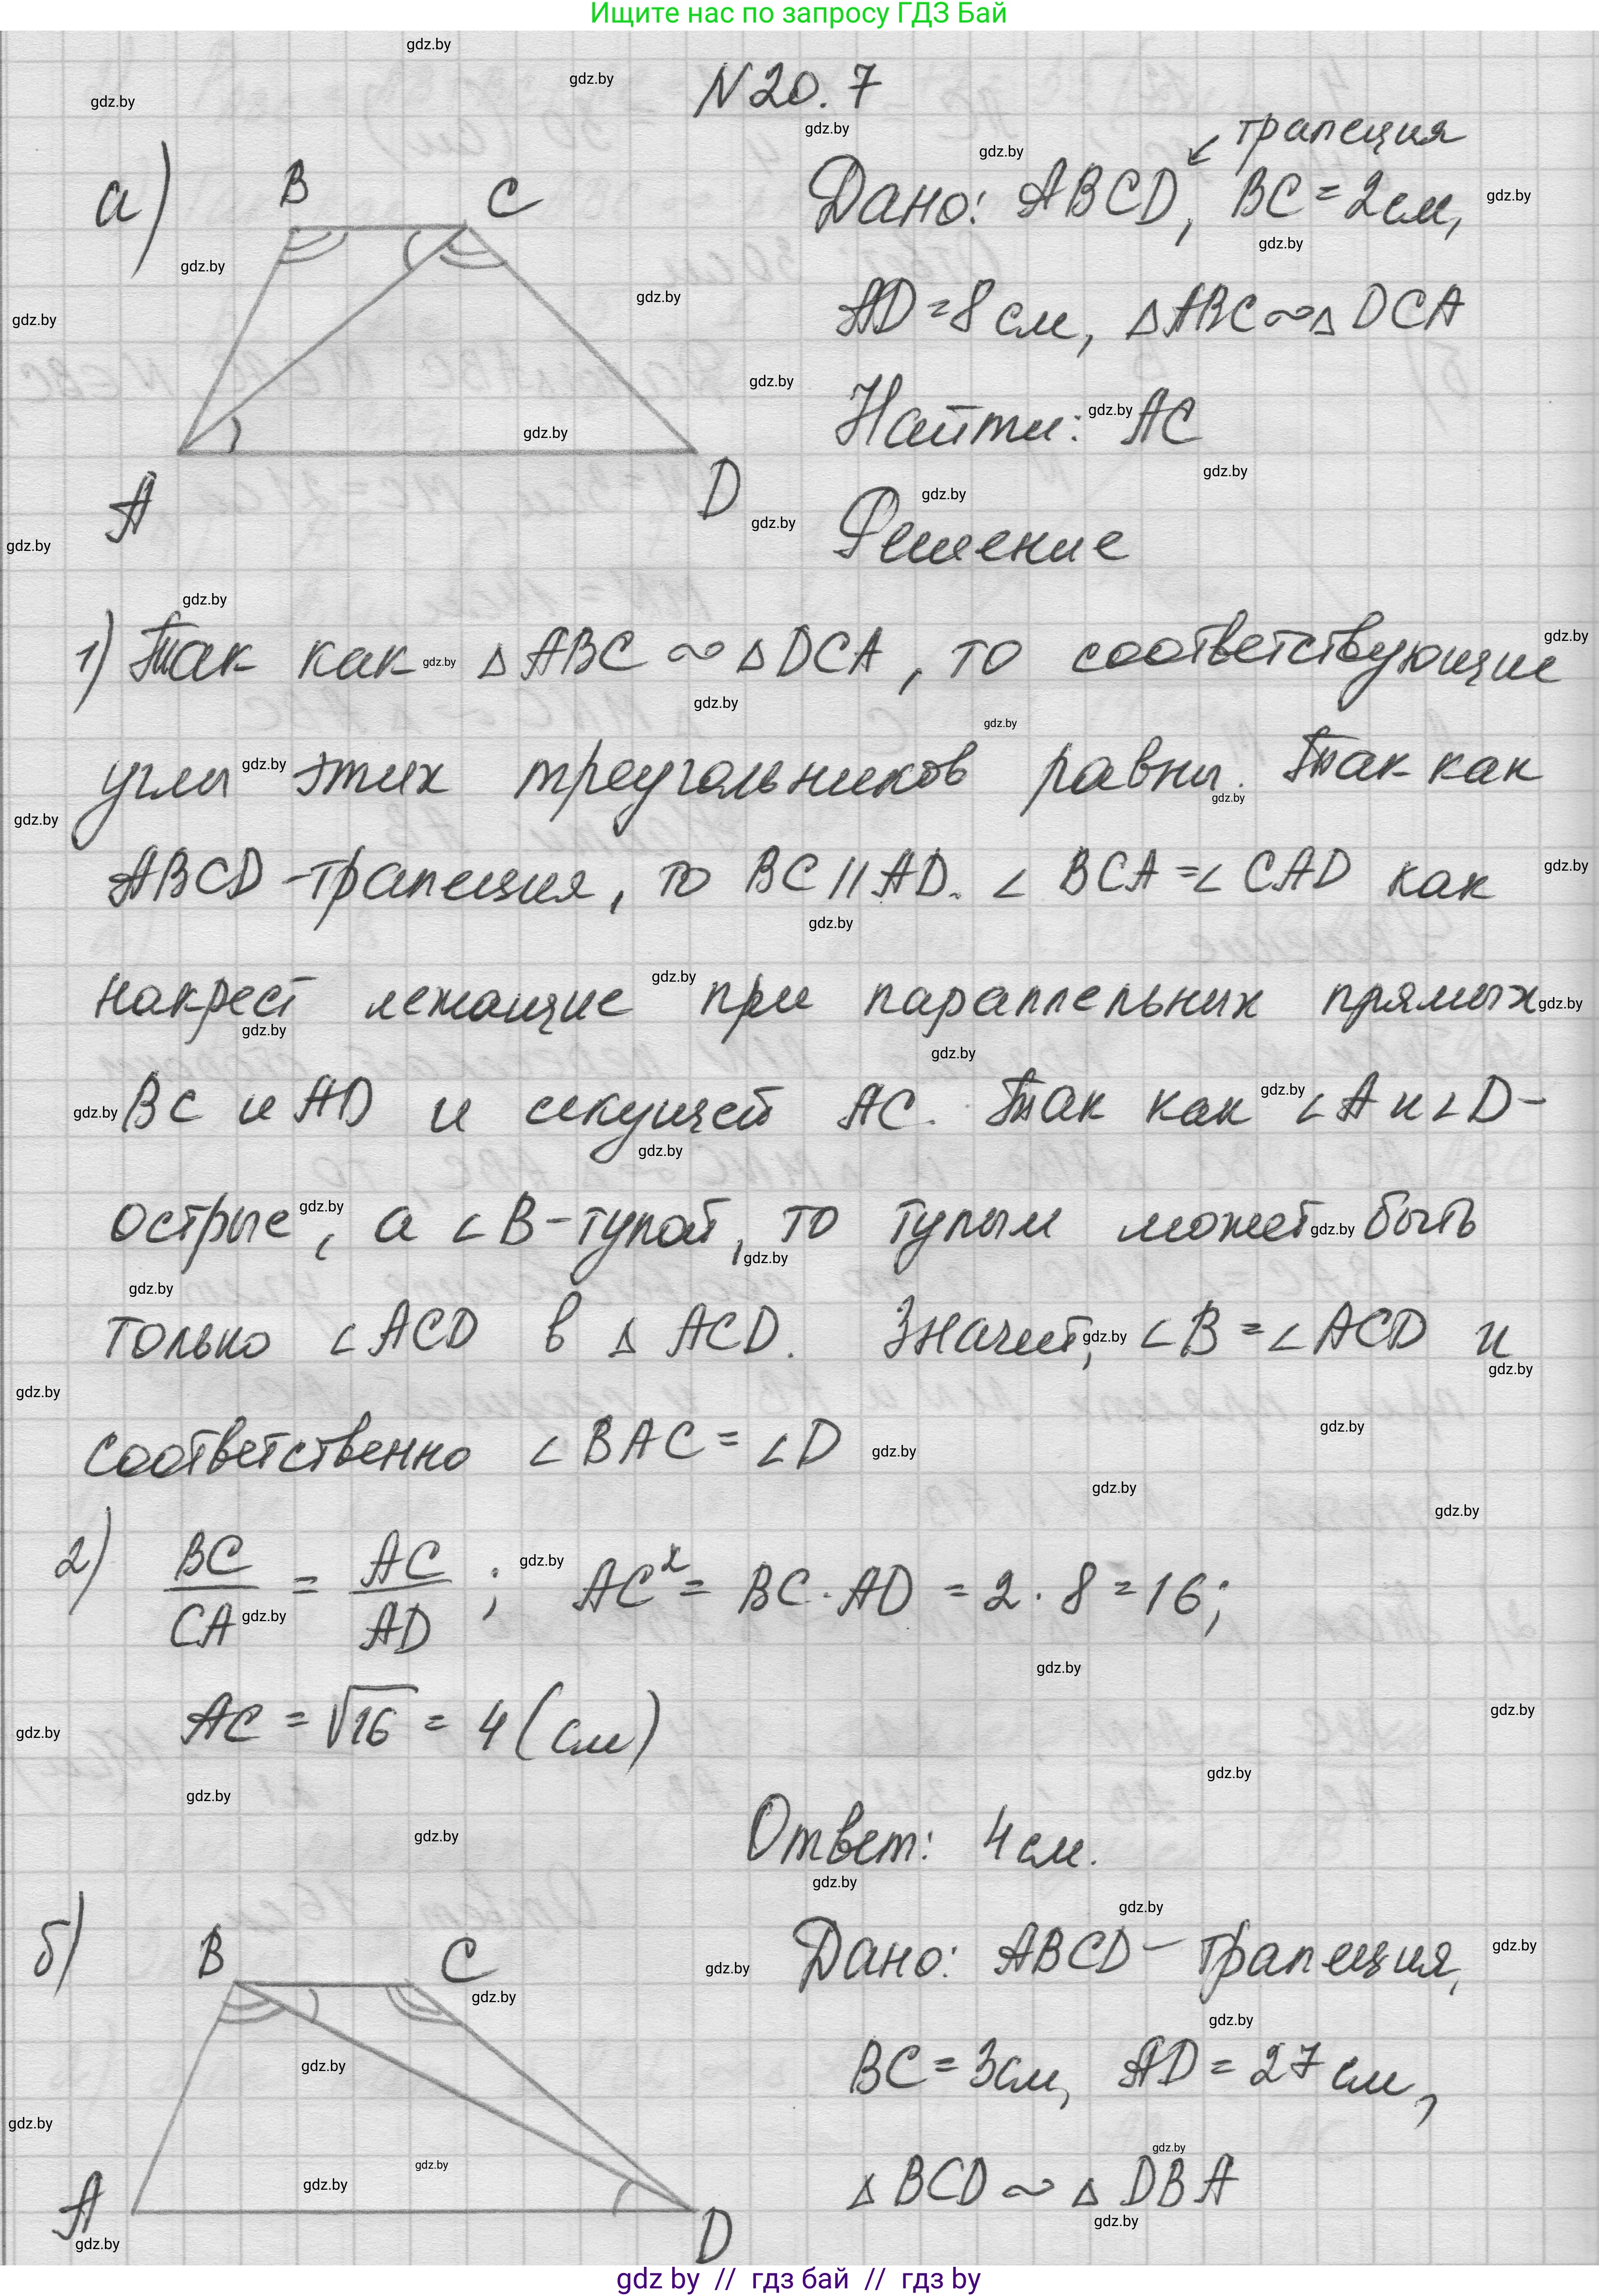 Ищите нас по запросу ГДЗ Бай
N 20.7
трапеция
а)
B C
Дано: ABCD, BC = 2 см,
AD = 8 см, ΔABC ∾ Δ DCA
Найти: AC
A D
Решение
1) Так как Δ ABC ∾ Δ DCA, то соответствующие
углы этих треугольников равны. Так как
ABCD - трапеция, то BC || AD. ∠ BCA = ∠ CAD как
накрест лежащие при параллельных прямых
BC и AD и секущей AC. Так как ∠A и ∠D -
острые, а ∠B - тупой, то тупым может быть
только ∠ACD в Δ ACD. Значит, ∠B = ∠ACD и
соответственно ∠BAC = ∠D
2) BC/CA = AC/AD ; AC² = BC · AD = 2 · 8 = 16;
AC = √16 = 4 (см)
Ответ: 4 см.
б)
B C
Дано: ABCD - трапеция,
BC = 3 см, AD = 27 см,
Δ BCD ∾ Δ DBA
A D
gdz by // гдз бай // гдз by